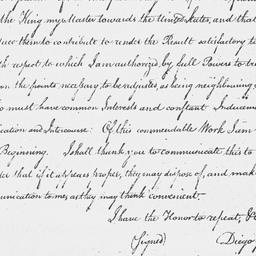 the King my Master towards the United States, and that
them to contribute to render the Result satisfactory to
respect to which I am authorized by full Powers to tre
on the points necessary to be adjusted, as being neighbouring
must have common Interests and constant Inducem
ication and Intercourse: Of this commendable Work I am
Beginning. I shall thank you to communicate this to
der that if it appears proper, they may dispose of, and mak
munication to me, as they may think convenient.
I have the Honor to repeat, &
(Signed) Diego